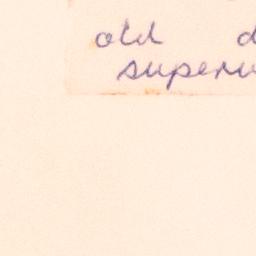 old d
superv